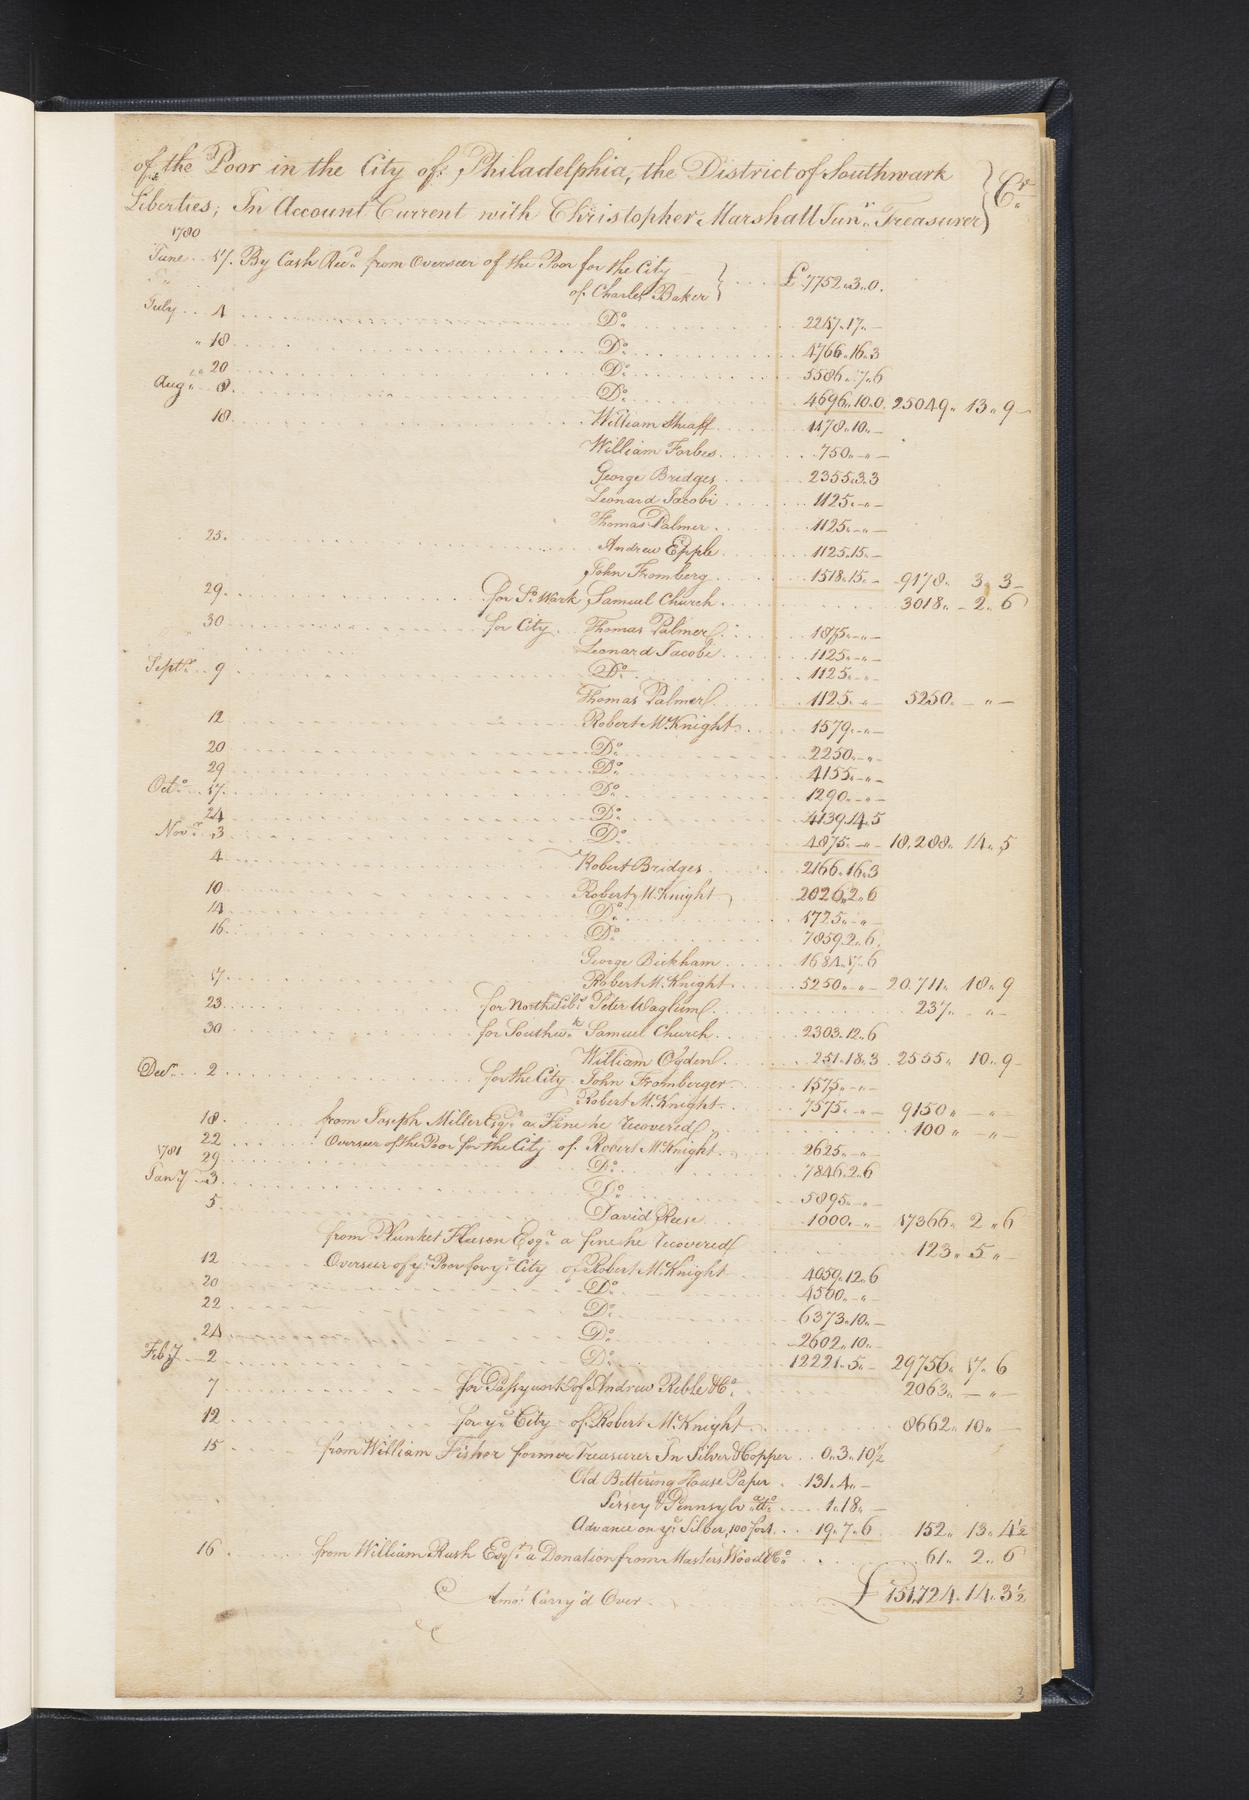 of the Poor in the City of Philadelphia, the District of Southwark } Cr
Liberties; In Account Current with Christopher Marshall Junr. Treasurer
1780
June .. 17. By Cash Recd. from Overseer of the Poor for the City
of Charles Baker } .... £ 7752..3..0.
July .. 4 Do. 2247..17..—
" 18 Do. 4766..16..3
" 20 Do. 5586..7..6
Augt. 8. Do. 4696..10..0. 25049.. 13.. 9—
18. William Sheaff 1178..10..—
William Forbes 750..—..—
George Bridges 2355..3..3
Leonard Jacobi 1125..—..—
Thomas Palmer 1125..—..—
25. Andrew Epple 1125..15..—
John Fromberg 1518..15..— 9178.. 3.. 3—
29. for So. Wark Samuel Church 3018..—2..6
30 for City Thomas Palmer 1875..—..—
Leonard Jacobi 1125..—..—
Septr. 9 Do. 1125..—..—
Thomas Palmer 1125..—..— 5250.—..—
12 Robert McKnight 1579..—..—
20 Do. 2250..—..—
29 Do. 4155..—..—
Octo. 17. Do. 1290..—..—
24 Do. 4139..14..5
Novr. 3 Do. 4875..—..— 18.288.. 14..5
4 Robert Bridges 2166..16..3
10 Robert McKnight 2026..2..6
14 Do. 1725..—..—
16. Do. 7859..2..6.
George Bickham 1684..17..6
17. Robert McKnight 5250..—..— 20.711.. 18..9
23 for North Libs. Peter Waglum 237..—..—
30 for Southwk. Samuel Church 2303..12..6
William Ogden 251..18..3 2555.. 10..9—
Decr. 2 for the City John Fromberger 1575..—..—
Robert McKnight 7575..—..— 9150..—..—
18. from Joseph Miller Esqr. a Fine he Recovered 100..—..—
22 Overseer of the Poor for the City of Robert McKnight 2625..—..—
1781 29 Do. 7846..2..6
Jany 3 Do. 5895..—..
5 David Rese 1000..—..— 17366.. 2..6
from Plunket Fleeson Esqr. a fine he Recovered 123.. 5..—
12 Overseer of ye. Poor for ye. City of Robert McKnight 4059..12..6
20 Do. 4500..—..—
22 Do. 6373..10..—
24 Do. 2602..10..—
Feby 2 Do. 12221..5..— 29756.. 17..6
7 for Passyunk of Andrew Reble &Co. 2063..—..—
12 for ye. City of Robert McKnight 8662.. 10..—
15 from William Fisher former Treasurer In Silver & Copper .. 0..3..10½
Old Bettering House Paper . 131..4..—
Jersey & Pennsylva. do. 1..18..—
Advance on ye. Silver, 100 for 1. ... 19..7..6 152.. 13.. 4½
16 from William Rush Esqr. a Donation from Masters Wood &Co. 61.. 2..6
Amot. Carry'd Over £ 151.724..14..3½
3